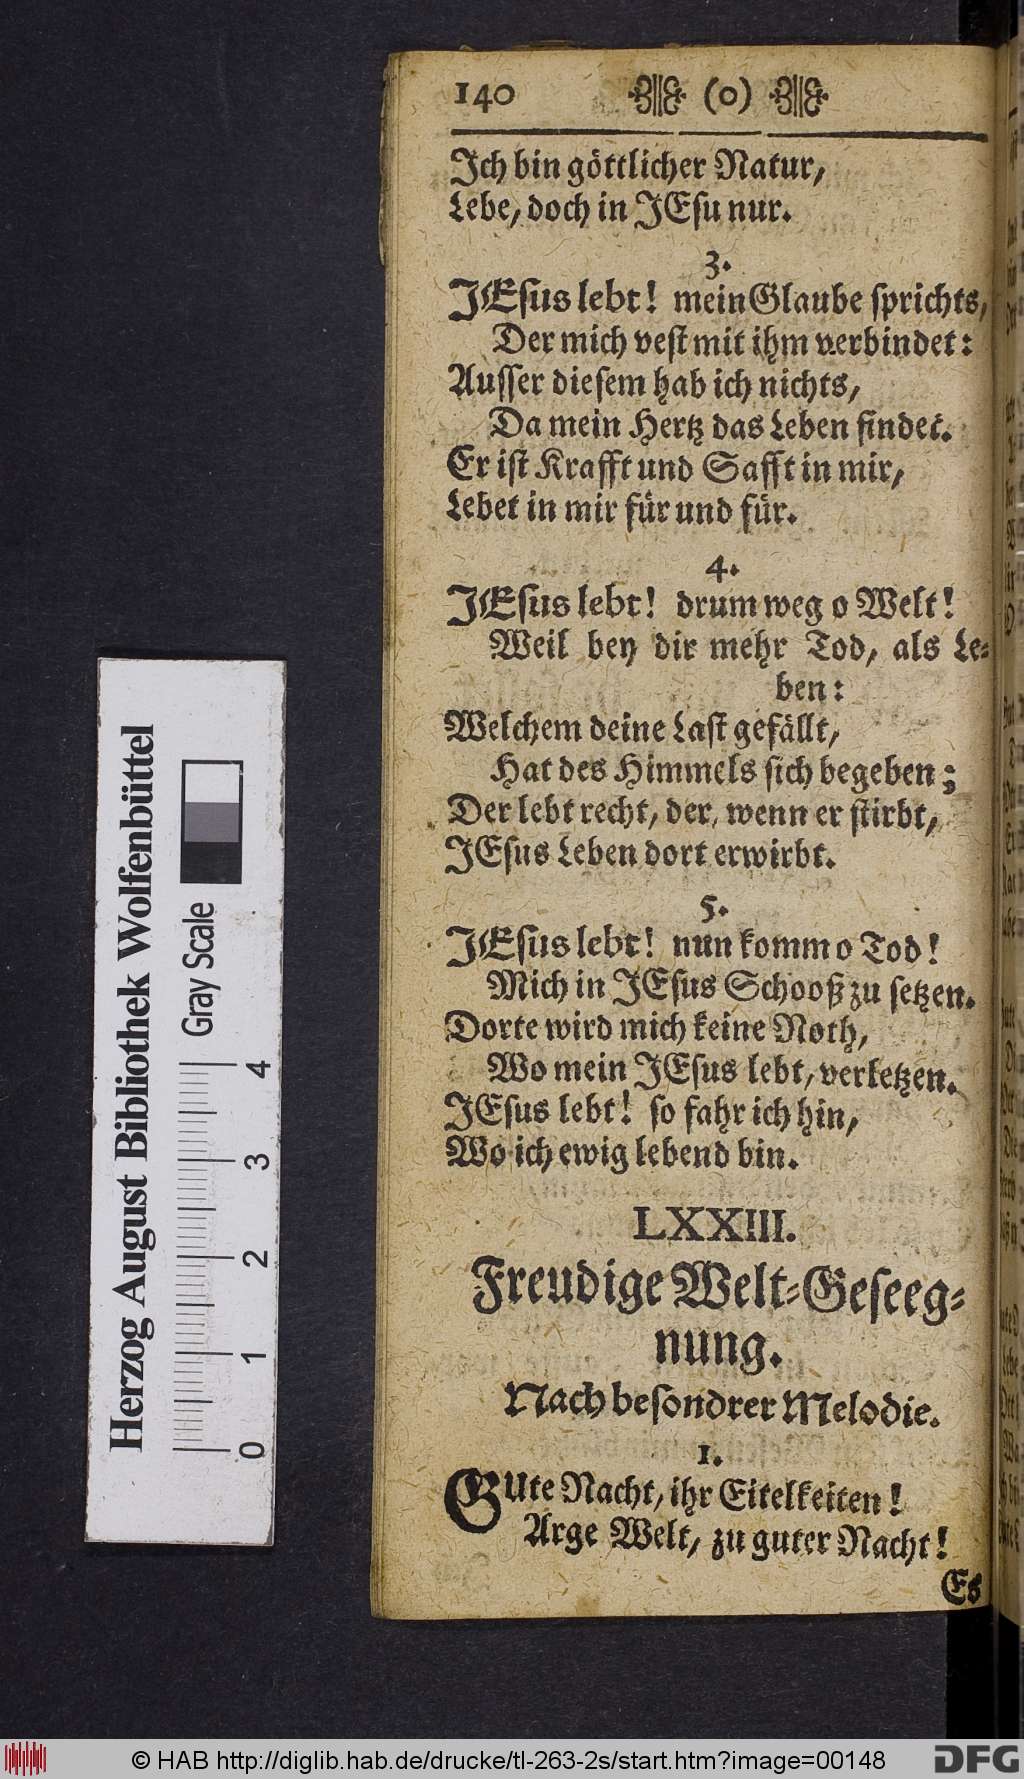 140 (0)
Ich bin göttlicher Natur,
Lebe, doch in JEsu nur.
3.
JEsus lebt! mein Glaube sprichts,
Der mich vest mit ihm verbindet:
Ausser diesem hab ich nichts,
Da mein Hertz das Leben findet.
Er ist Krafft und Safft in mir,
Lebet in mir für und für.
4.
JEsus lebt! drum weg o Welt!
Weil bey dir mehr Tod, als Le-
ben:
Welchem deine Last gefällt,
Hat des Himmels sich begeben;
Der lebt recht, der, wenn er stirbt,
JEsus Leben dort erwirbt.
5.
JEsus lebt! nun komm o Tod!
Mich in JEsus Schooß zu setzen.
Dorte wird mich keine Noth,
Wo mein JEsus lebt, verletzen.
JEsus lebt! so fahr ich hin,
Wo ich ewig lebend bin.
LXXIII.
Freudige Welt-Geseeg-
nung.
Nach besondrer Melodie.
1.
Gute Nacht, ihr Eitelkeiten!
Arge Welt, zu guter Nacht!
Es
Herzog August Bibliothek Wolfenbüttel
Gray Scale
0 1 2 3 4
© HAB http://diglib.hab.de/drucke/tl-263-2s/start.htm?image=00148
DFG